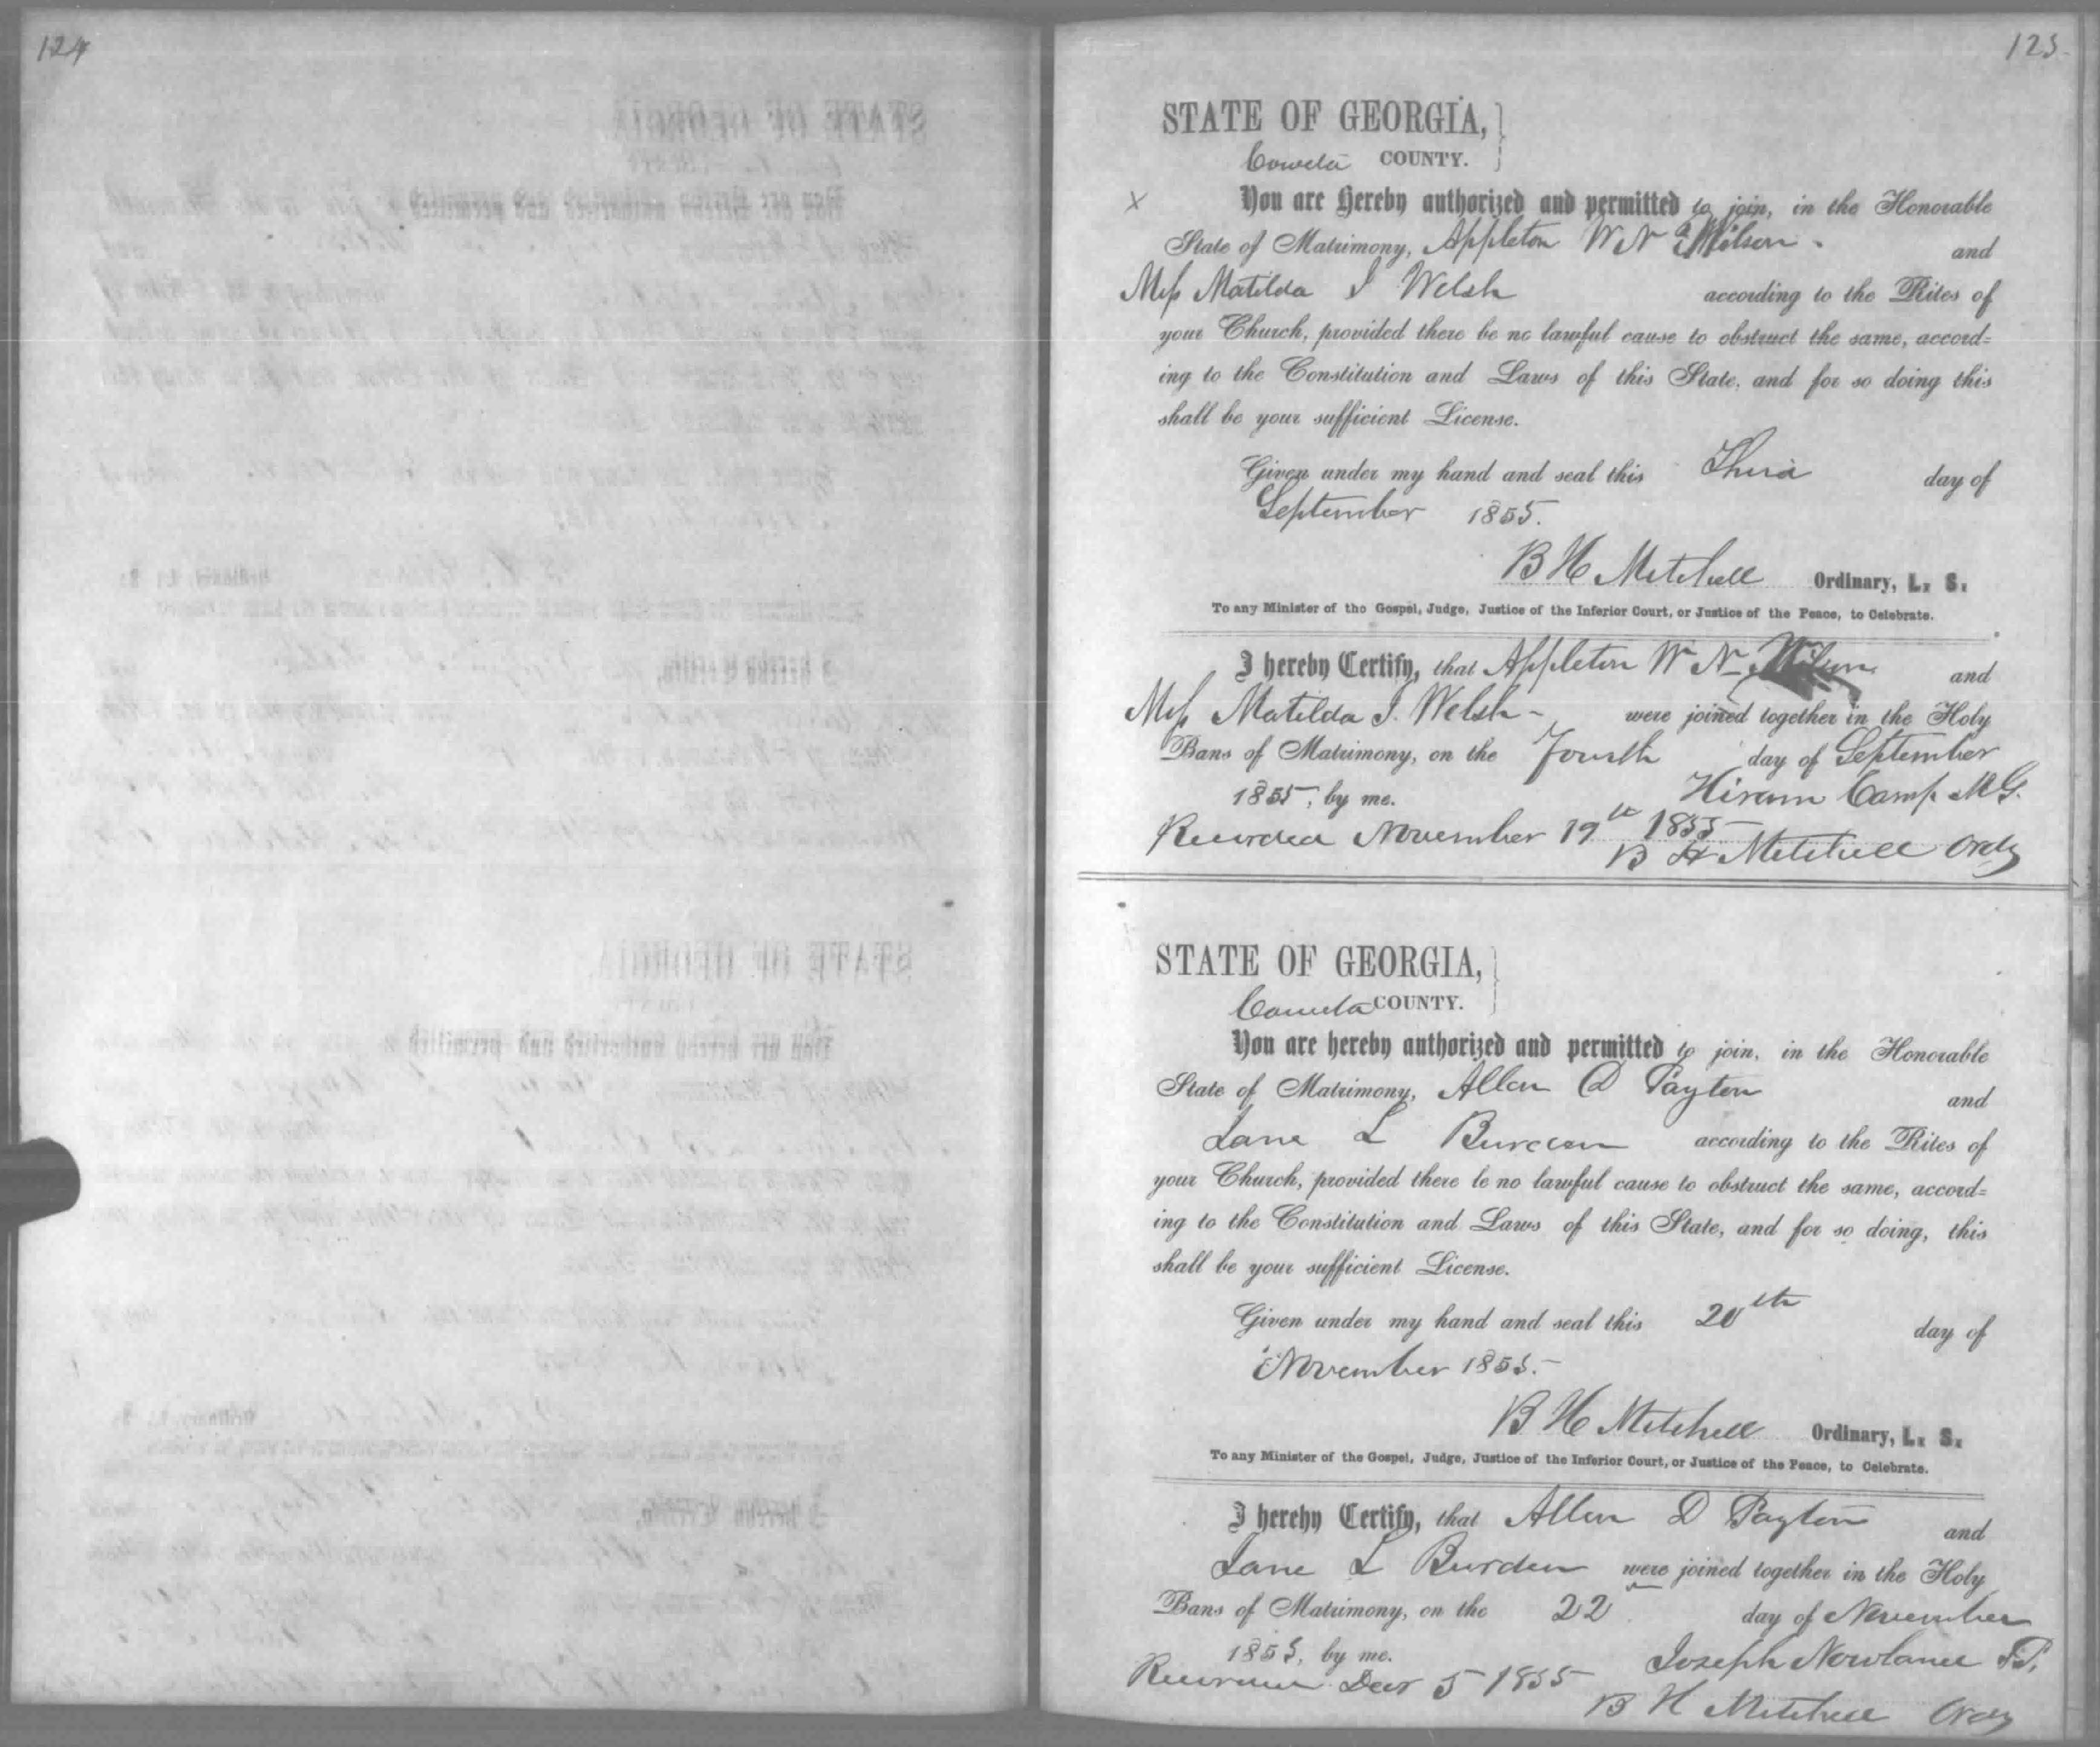 124
125
STATE OF GEORGIA,
Coweta COUNTY.
X You are Hereby authorized and permitted to join, in the Honorable
State of Matrimony, Appleton W N Wilson and
Miss Matilda J Welsh according to the Rites of
your Church, provided there be no lawful cause to obstruct the same, accord=
ing to the Constitution and Laws of this State, and for so doing this
shall be your sufficient License.
Given under my hand and seal this Third day of
September 1855.
B H Mitchell Ordinary, L. S.
To any Minister of the Gospel, Judge, Justice of the Inferior Court, or Justice of the Peace, to Celebrate.
I hereby Certify, that Appleton W N Wilson and
Miss Matilda J. Welsh - were joined together in the Holy
Bans of Matrimony, on the Fourth day of September
1855, by me. Hiram Camp M G.
Recorded November 19th 1855
B H Mitchell Ordy
STATE OF GEORGIA,
Coweta COUNTY.
You are hereby authorized and permitted to join, in the Honorable
State of Matrimony, Allen D Payton and
Jane L Burden according to the Rites of
your Church, provided there be no lawful cause to obstruct the same, accord=
ing to the Constitution and Laws of this State, and for so doing, this
shall be your sufficient License.
Given under my hand and seal this 20th day of
November 1855.-
B H Mitchell Ordinary, L. S.
To any Minister of the Gospel, Judge, Justice of the Inferior Court, or Justice of the Peace, to Celebrate.
I hereby Certify, that Allen D Payton and
Jane L Burden were joined together in the Holy
Bans of Matrimony, on the 22 day of November
1855, by me. Joseph Nowlance J.P.
Recorded Decr 5 1855
B H Mitchell Ordy